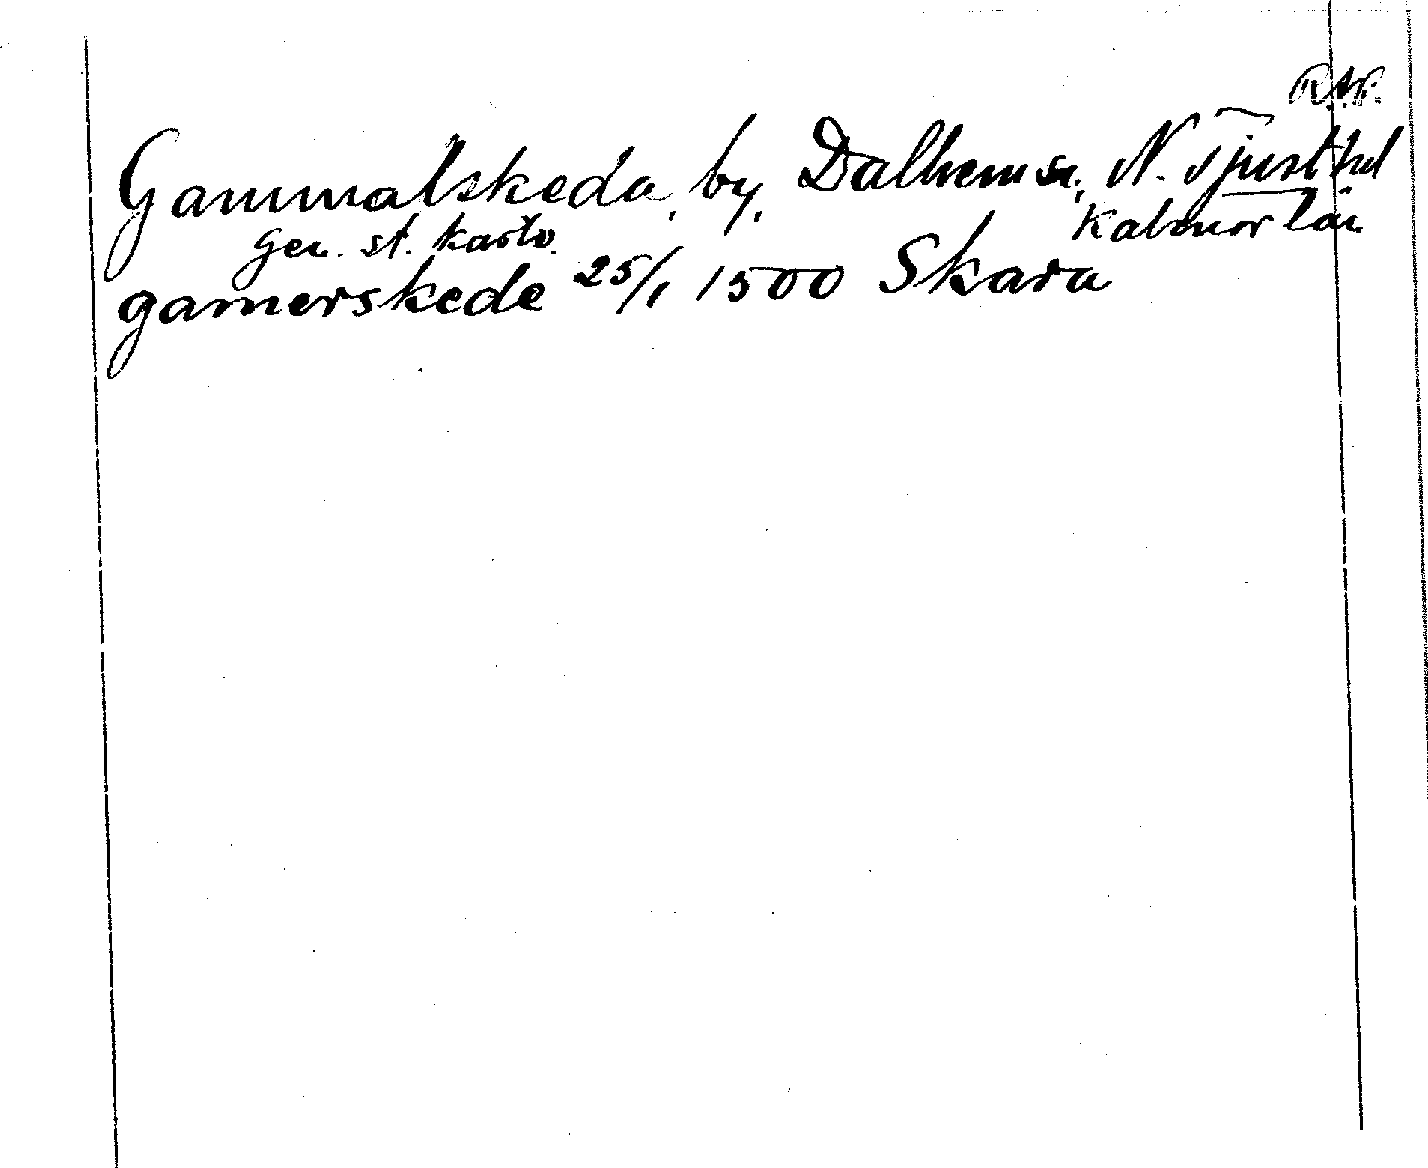 R.A.P.
Gammalskeda, by, Dalhem sn, N. Tjust hd
Gen. st. karta. Kalmar län
gamerskede 25/1 1500 Skara